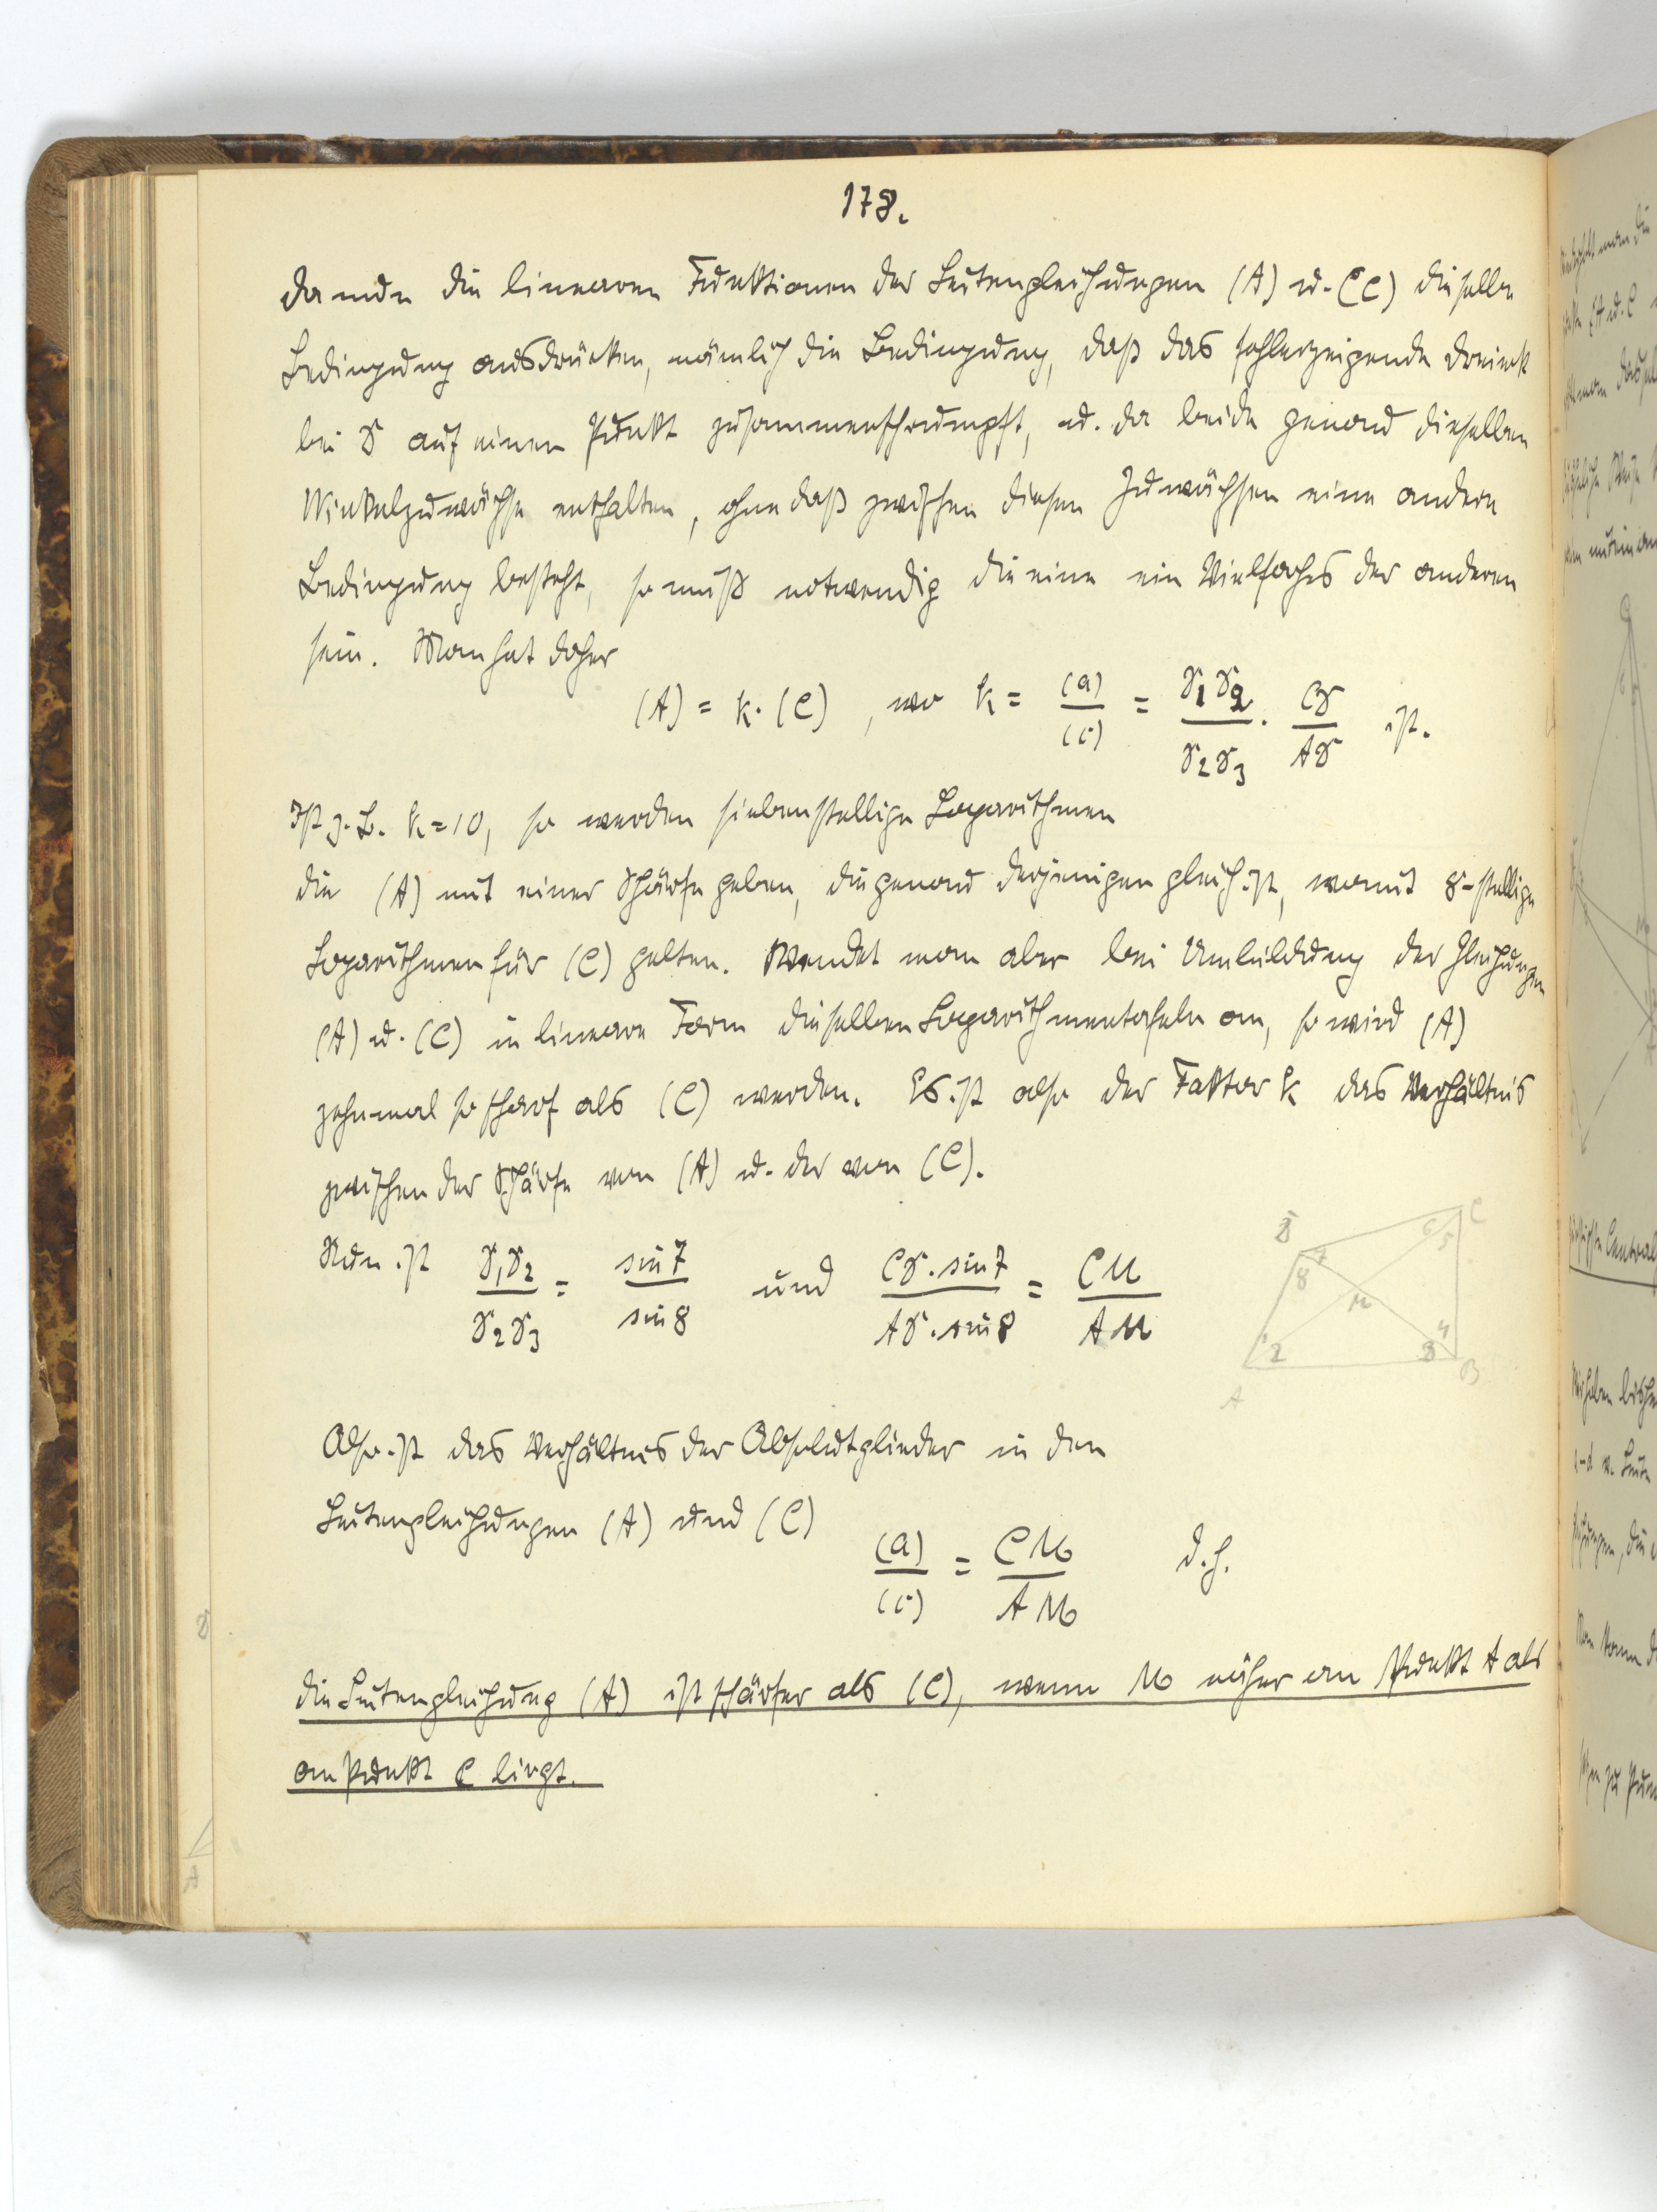 178.
Da nun die linearen Funktionen der Seitengleichungen (A) u. (C) dieselbe
Bedingung ausdrücken, nämlich die Bedingung, daß das fehlerzeigende Dreieck
bei D auf einen Punkt zusammenschrumpft, u. da beide genau dieselben
Winkelzuwächse enthalten, ohne daß zwischen diesen Zuwächsen eine andere
Bedingung besteht, so muß notwendig die eine ein Vielfaches der anderen
sein. Man hat daher
(A) = k. (C) , wo k = (a)/(c) = D1D2/D2D3 . CD/AD ist.
Ist z. B. k = 10, so werden siebenstellige Logarithmen
die (A) mit einer Schärfe geben, die genau derjenigen gleich ist, womit 8-stellige
Logarithmen für (C) gelten. Wendet man aber bei Umbildung der Gleichungen
(A) u. (C) in lineare Form dieselben Logarithmentafeln an, so wird (A)
zehnmal so scharf als (C) werden. Es ist also der Faktor k das Verhältnis
zwischen der Schärfe von (A) u. der von (C).
Nun ist D1D2/D2D3 = sin 7/sin 8 und CD . sin 7/AD . sin 8 = CM/AM
D C 6 5 7 8 M 1 2 4 3 A B
Also ist das Verhältnis der Absolutglieder in den
Seitengleichungen (A) und (C)
(a)/(c) = CM/AM d. h.
die Seitengleichung (A) ist schärfer als (C), wenn M näher an Punkt A als
an Punkt C liegt.